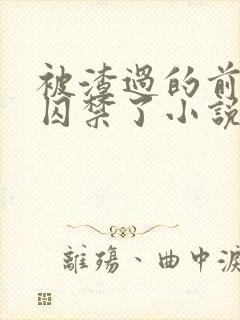 被渣過的前
囚禁了小說
離殤、曲中淚